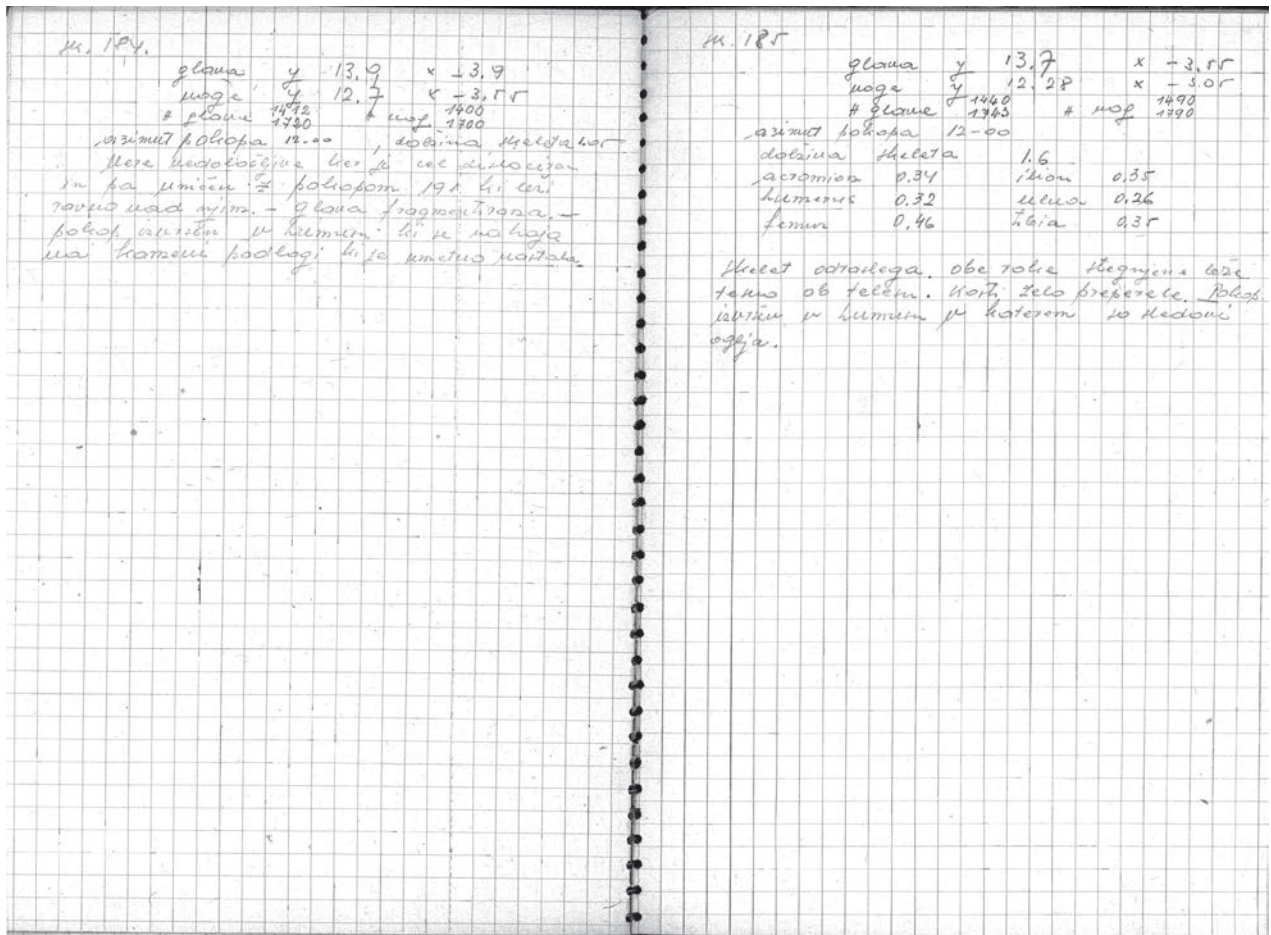 sk. 184.
glava y 13.9 x -3.9
noge y 12.7 x -3.55
# glave 1720 # nog 1400 1700
azimut pokopa 12.00, dolžina skeleta
Mere nedoločljive ker je ves dislociran
in pa uničen z pokopom 191 ki leži
ravno nad njim. - glava fragmentirana. -
pokop izvršen v humusu ki se nahaja
na kameni podlagi ki je umetno nastala
sk. 185
glava y 13.7 x -3.55
noge y 12.28 x -3.05
# glave 1440 1743 # nog 1490 1790
azimut pokopa 12-00
dolžina skeleta 1.6
acromion 0.34 ilion 0.35
humerus 0.32 ulna 0.26
femur 0.46 tibia 0.35
skelet odraslega. obe roke stegnjene leže
tesno ob telesu. kosti zelo preperele. Pokop
izvršen v humusu v katerem so sledovi
oglja.